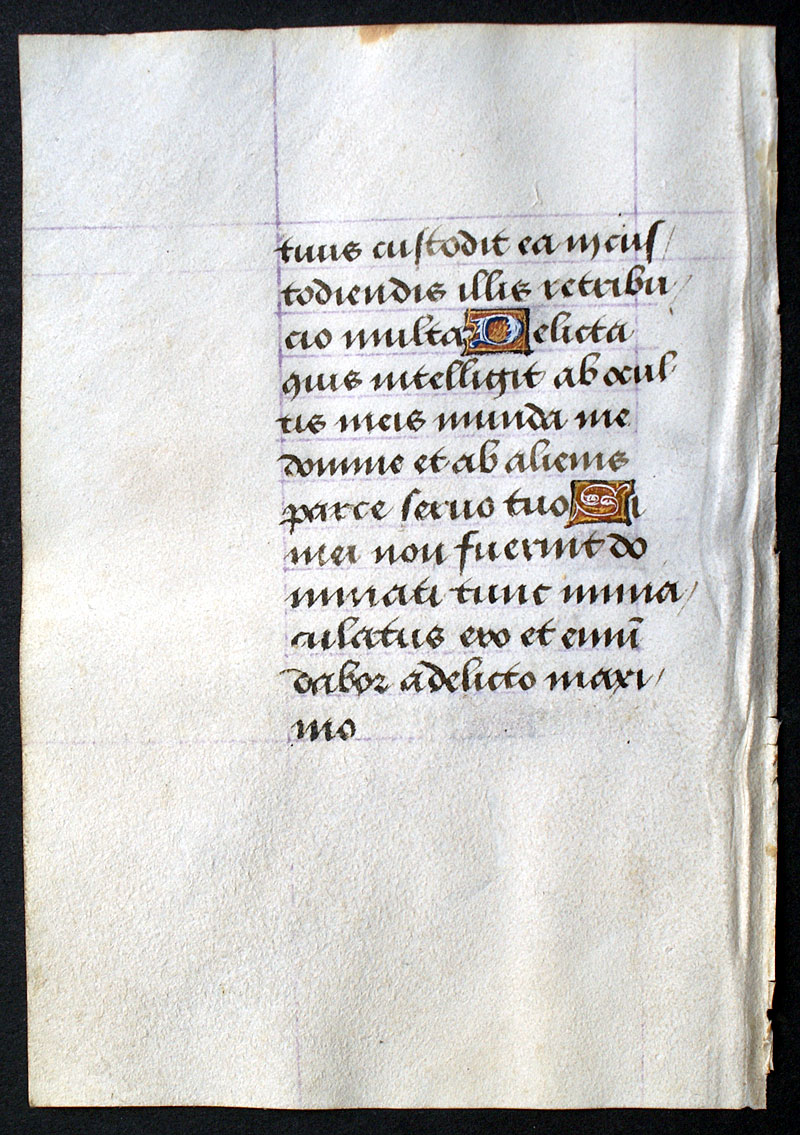 tuus custodit ea in cus/
todiendis illis retribu/
cio multa Delicta
quis intelligit ab ocul
tis meis munda me
domine et ab alienis
parce seruo tuo Si
mei non fuerint do
minati tunc inma/
culatus ero et emū
dabor a delicto maxi/
mo